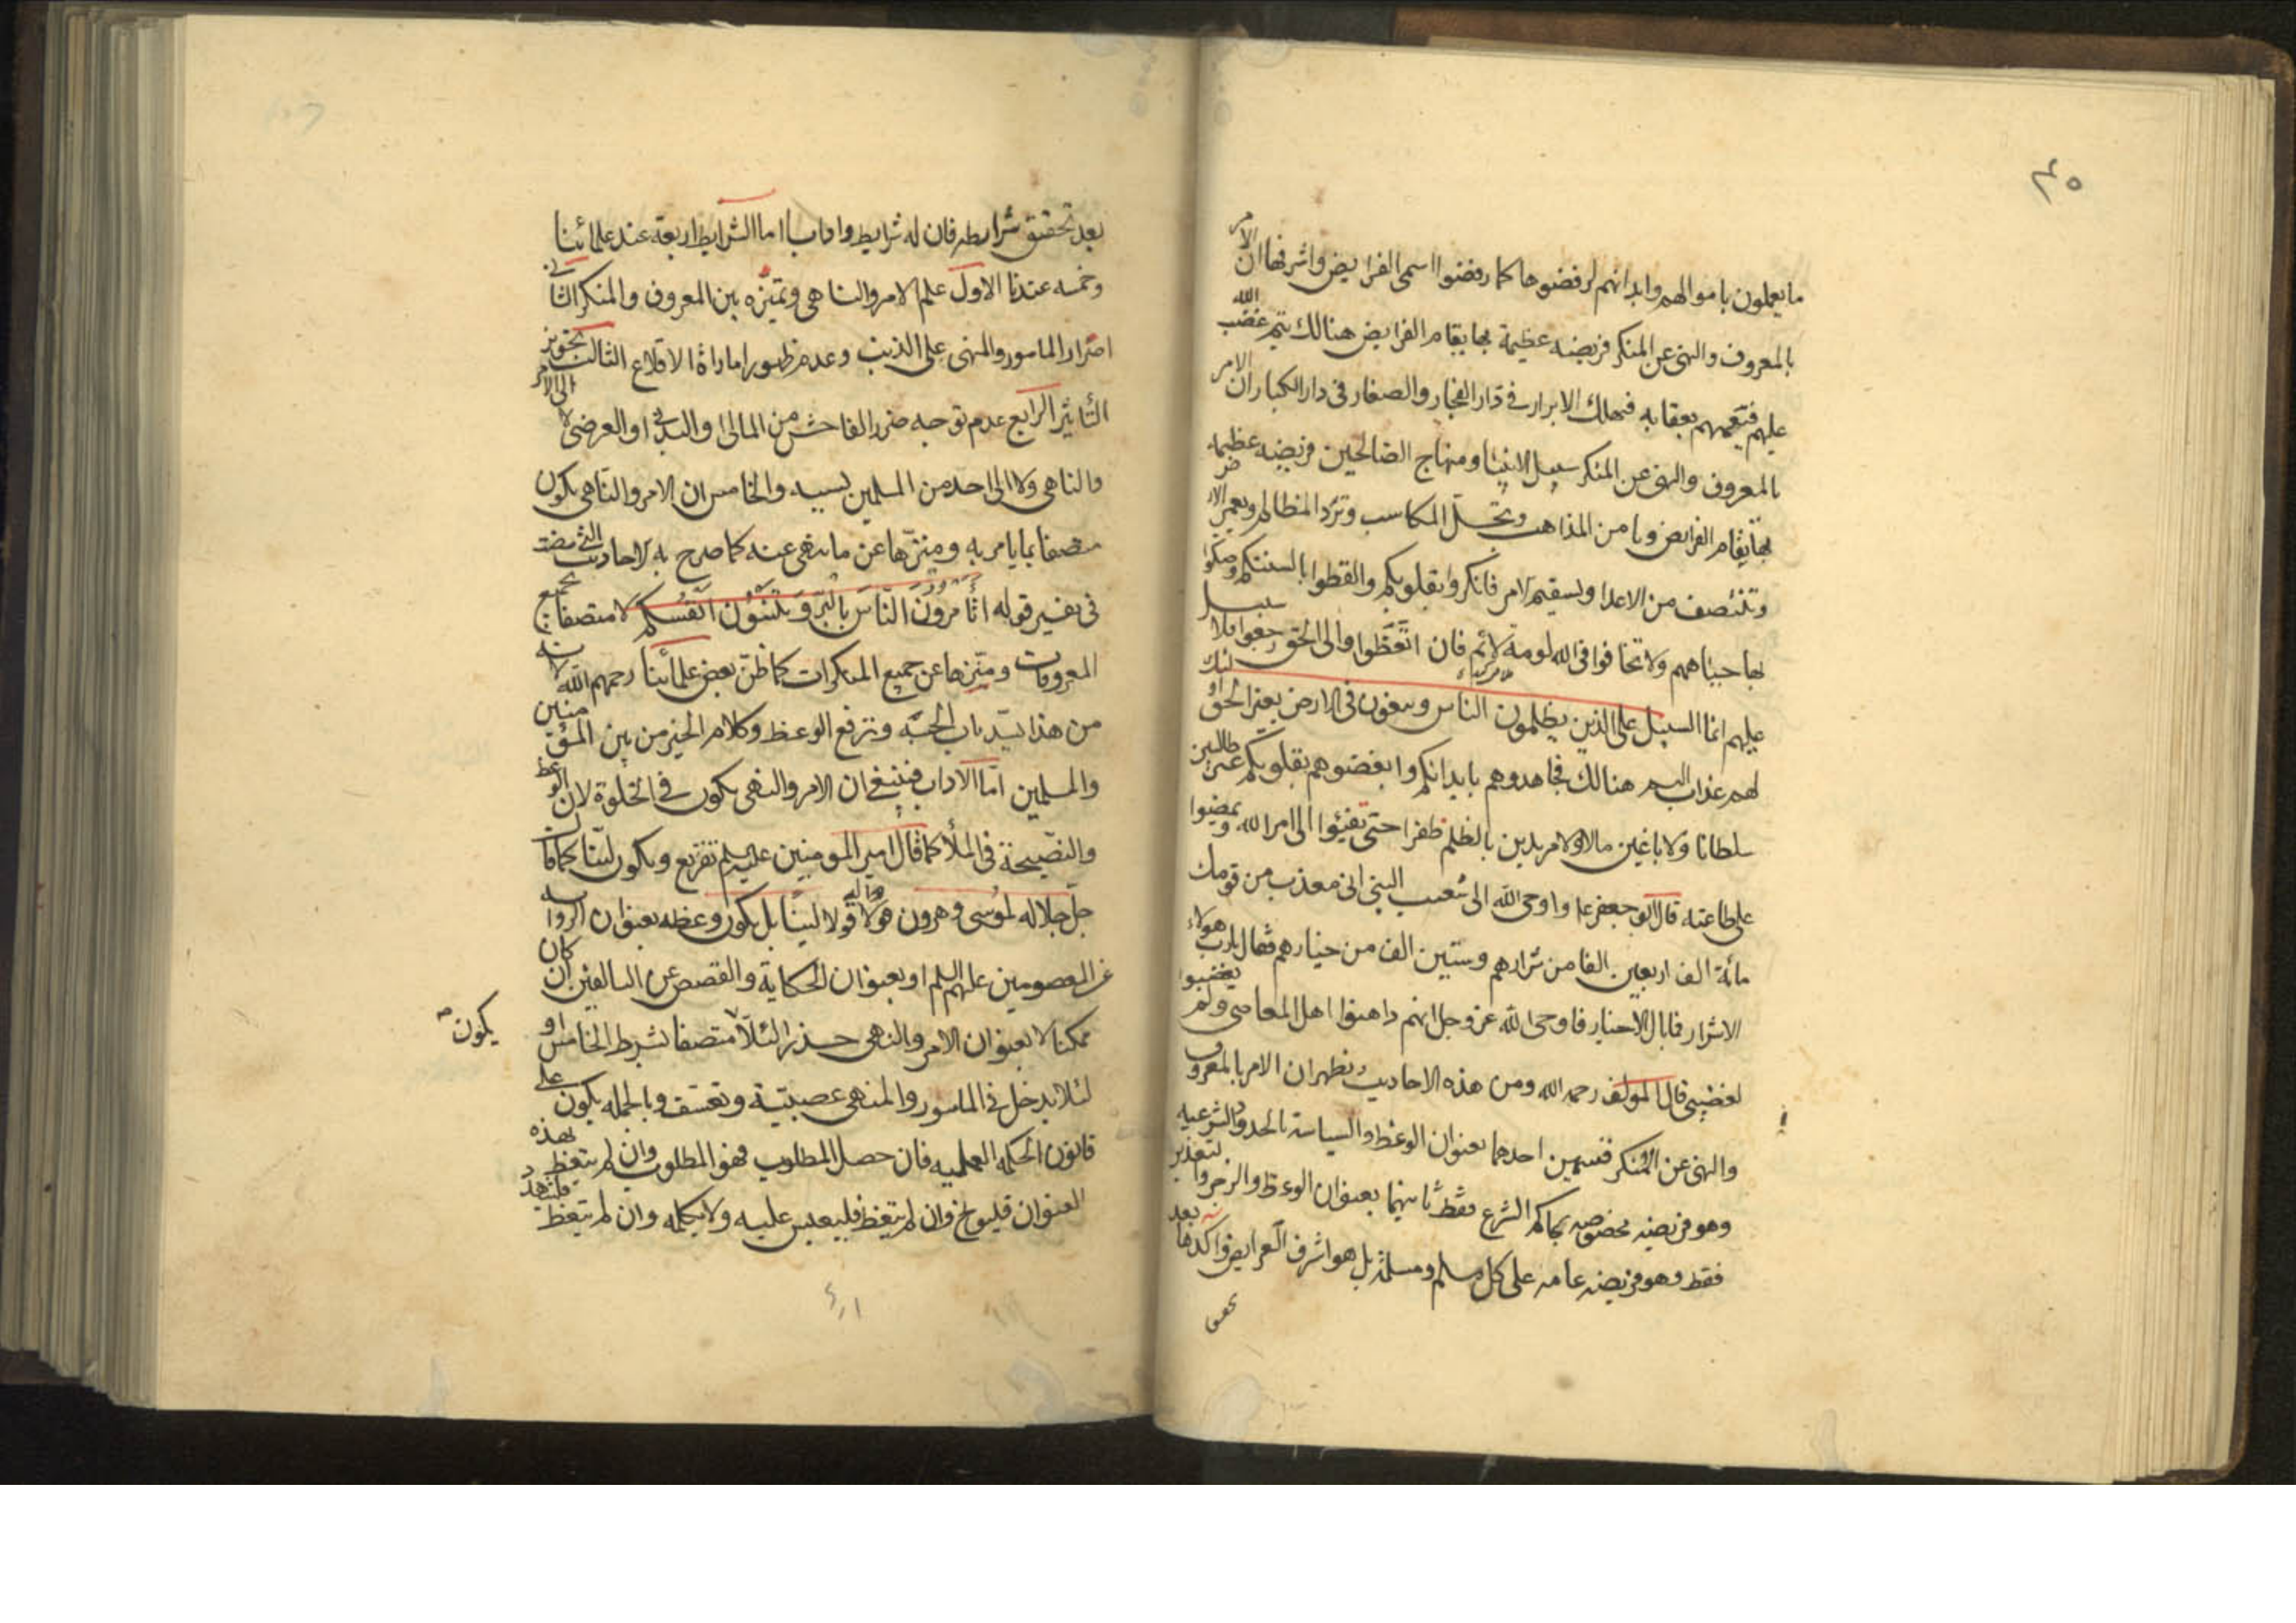 ٣٥
ما يعملون باموالهم وابدانهم لرفضوها كما رفضوا اسمى الفرايض واشرفها ان الامر
بالمعروف والنهى عن المنكر فريضه عظيمة بها يقام الفرايض هنالك يتم غضب الله
عليهم فيعمهم بعقابه فيهلك الابرار فى دار الفجار والصغار فى دار الكبار ان الامر
بالمعروف والنهى عن المنكر سبيل الانبيا ومنهاج الصالحين فريضه عظيمه
بها يقام الفرايض ويامن المذاهب وتحل المكاسب وترد المظالم ويعمر الارض
وتنتصف من الاعدا ويستقيم الامر فانكروا بقلوبكم والفظوا بالسنتكم وصكوا
بها جباههم ولا تخافوا فى الله لومة لائم فان اتعظوا والى الحق رجعوا فلا سبيل
عليهم انما السبيل على الذين يظلمون الناس ويبغون فى الارض بغير الحق اولئك
لهم عذاب اليم هنالك فجاهدوهم بابدانكم وابغضوهم بقلوبكم غير طالبين
سلطانا ولا باغين مالا ولا مريدين بالظلم ظفرا حتى يفيئوا الى امر الله ويمضوا
على طاعته قال ابو جعفر ع واوحى الله الى شعيب النبى انى معذب من قومك
مائة الف اربعين الفا من شرارهم وستين الف من خيارهم فقال يارب هولاء
الاشرار فما بال الاخيار فاوحى الله عز وجل انهم داهنوا اهل المعاصى ولم يغضبوا
لغضبى قال المولف رحمه الله ومن هذه الاحاديث يظهر ان الامر بالمعروف
والنهى عن المنكر قسمين احدهما بعنوان الوعظ والسياسة بالحدود الشرعيه
وهو فريضه مخصوصه بحاكم الشرع فقط ثانيهما بعنوان الوعظ والزجر والتعذير
فقط وهو فريضه عامه على كل مسلم ومسلمة بل هو اشرف الفرايض واكدها بعد
تحقق
بعد تحقيق شرايطه فان له شرايط وادابا اما الشرايط اربعة عند علمائنا
وخمسه عندنا الاول علم الامر والناهى وتميزه بين المعروف والمنكر الثانى
اصرار المامور والمنهى على الذنب وعدم ظهور اماراة الاقلاع الثالث تجويز
التأثير الرابع عدم توجه ضرر الفاحش من المالى او البدنى او العرضى لا الى الامر
والناهى ولا الى احد من المسلمين بسببه والخامس ان الامر والناهى يكون
متصفا بما يامر به ومنزها عن ما ينهى عنه كما صرح به الاحاديث التى مضت
فى تفسير قوله اتأمرون الناس بالبر وتنسون انفسكم لا متصفا بجميع
المعروفات ومنزها عن جميع المنكرات كما ظن بعض علمائنا رحمهم الله لانه
من هذا يسد باب الحسبه وترفع الوعظ وكلام الخير من بين المؤمنين
والمسلمين اما الاداب فينبغى ان الامر والنهى يكون فى الخلوة لان الوعظ
والنصيحة فى الملأ كما قال امير المومنين عليه السلم تقريع ويكون لينا كما قال
جل جلاله لموسى وهرون قولا له قولا لينا بل يكون وعظه بعنوان الرواية
عن المعصومين عليهم السلم او بعنوان الحكاية والقصص عن السالفين ان كان
ممكنا لا بعنوان الامر والنهى حذرا لئلا متصفا لشرط الخامس او
يكون
لئلا يدخل فى المامور والمنهى عصبيته وتعسف وبالجمله يكون على
قانون الحكمه العمليه فان حصل المطلوب فهو المطلوب وان لم يتعظ بهذه
العنوان فليوبخ وان لم يتعظ فليعبس عليه ولا يكلمه وان لم يتعظ فليتهدد